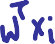 wᵀxi